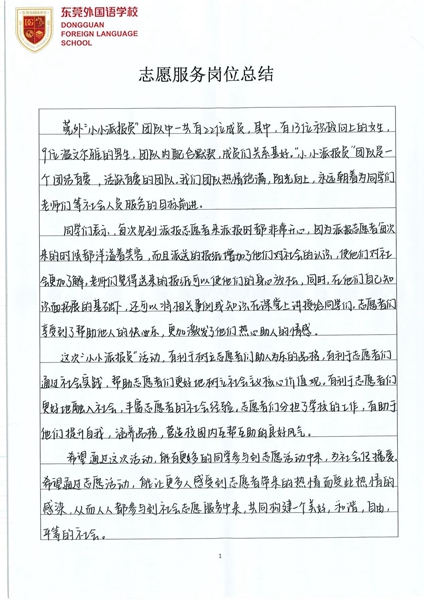 东莞外国语学校
DONGGUAN
FOREIGN LANGUAGE
SCHOOL
志愿服务岗位总结
莞外“小小派报员”团队中一共有22位成员，其中，有13位积极向上的女生，
9位温文尔雅的男生，团队内配合默契，成员们关系甚好。“小小派报员”团队是一
个团结有爱，活跃有爱的团队。我们团队热情饱满，阳光向上，永远朝着为同学们
老师们等社会人员服务的目标前进。
同学们表示，每次见到派报志愿者来派报时都非常开心，因为派报志愿者每次
来的时候都洋溢着笑容，而且派送的报纸增加了他们对社会的认识，使他们对社
会更加了解。老师们觉得送来的报纸可以使他们的身心放松，同时，在他们自己知
识面拓展的基础下，还可以将相关事例或知识在课堂上讲授给同学们。志愿者们
享受到了帮助他人的快乐，更加激发了他们热心助人的情感。
这次“小小派报员”活动，有利于树立志愿者们助人为乐的品格，有利于志愿者们
通过社会实践，帮助志愿者们更好地树立社会主义核心价值观，有利于志愿者们
更好地融入社会，丰富志愿者的社会经验。志愿者们分担了学校的工作，有助于
他们提升自我，涵养品格，营造校园内互帮互助的良好风气。
希望通过这次活动，能有更多的同学参与到志愿活动中来，为社会传播爱。
希望通过志愿活动，能让更多人感受到志愿者带来的热情而受此热情的
感染，从而人人都参与到社会志愿服务中来，共同构建一个美好，和谐，自由，
平等的社会。
1